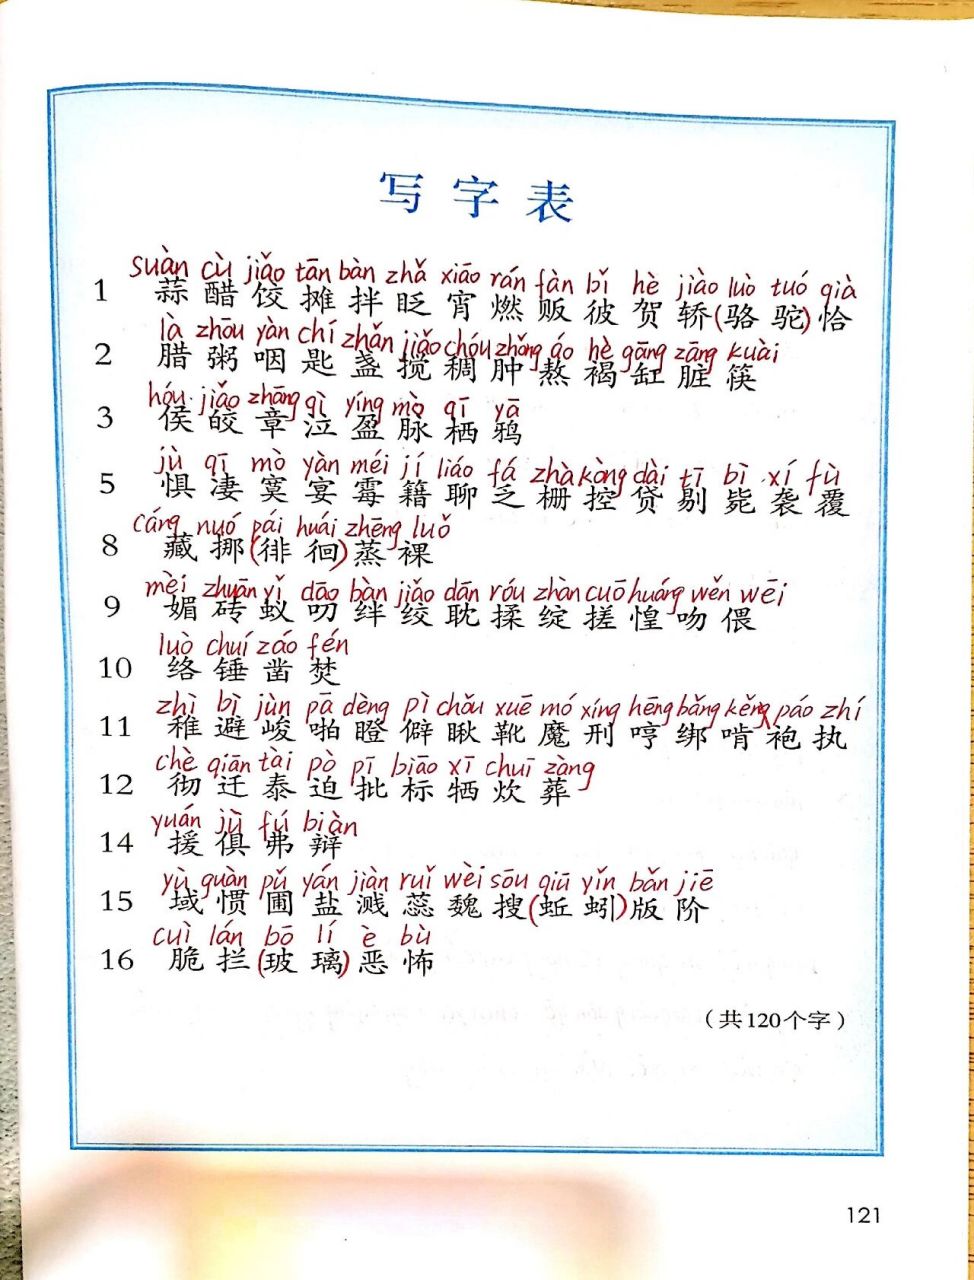 写字表
suàn cù jiǎo tān bàn zhǎ xiāo rán fàn bǐ hè jiào luò tuó qià
1 蒜 醋 饺 摊 拌 眨 宵 燃 贩 彼 贺 轿(骆 驼)恰
là zhōu yàn chí zhǎn jiǎo chóu zhǒng áo hè gāng zāng kuài
2 腊 粥 咽 匙 盏 搅 稠 肿 熬 褐 缸 脏 筷
hóu jiǎo zhāng qì yíng mò qī yā
3 侯 皎 章 泣 盈 脉 栖 鸦
jù qī mò yàn méi jí liáo fá zhà kòng dài tī bì xí fù
5 惧 凄 寞 宴 霉 籍 聊 乏 栅 控 贷 剔 毙 袭 覆
cáng nuó pái huái zhēng luǒ
8 藏 挪(徘 徊)蒸 裸
mèi zhuān yǐ dāo bàn jiǎo dān róu zhàn cuō huáng wěn wēi
9 媚 砖 蚁 叨 绊 绞 耽 揉 绽 搓 惶 吻 偎
luò chuí záo fén
10 络 锤 凿 焚
zhì bì jùn pā dèng pì chǒu xuē mó xíng hēng bǎng kěng páo zhí
11 稚 避 峻 啪 瞪 僻 瞅 靴 魔 刑 哼 绑 啃 袍 执
chè qiān tài pò pī biāo xī chuī zàng
12 彻 迁 泰 迫 批 标 牺 炊 葬
yuán jù fú biàn
14 援 俱 弗 辩
yù guàn pǔ yán jiàn ruǐ wèi sōu qiū yǐn bǎn jiē
15 域 惯 圃 盐 溅 蕊 魏 搜(蚯 蚓)版 阶
cuì lán bō lí è bù
16 脆 拦(玻 璃)恶 怖
（共120个字）
121